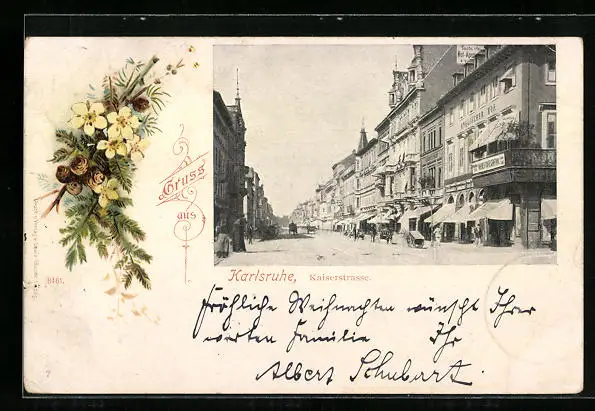 Gruss
aus
Karlsruhe, Kaiserstrasse.
8461.
Fröhliche Weihnachten wünscht Ihrer
werten Familie Ihr
Albert Schubart